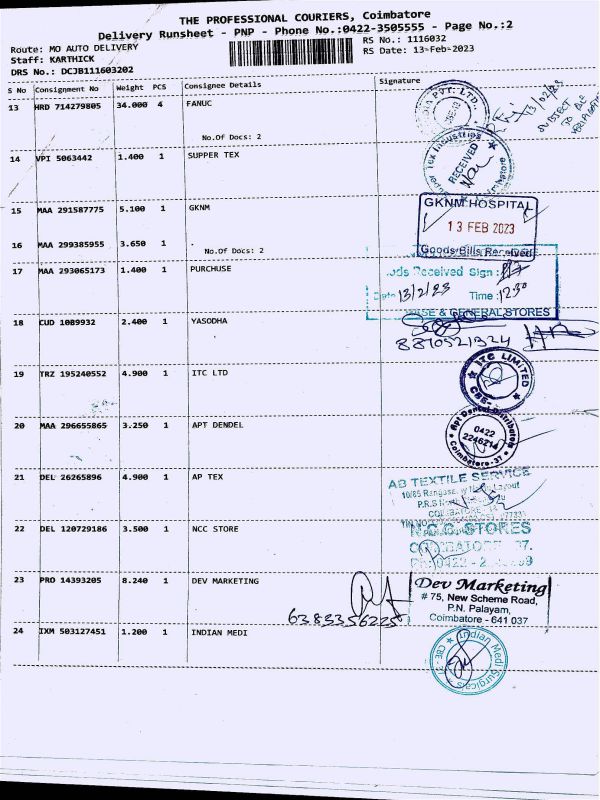 THE PROFESSIONAL COURIERS, Coimbatore
Delivery Runsheet - PNP - Phone No.:0422-3505555 - Page No.:2
Route: MO AUTO DELIVERY
RS No.: 1116032
Staff: KARTHICK
RS Date: 13-Feb-2023
DRS No.: DCJB111603202
S No Consignment No Weight PCS Consignee Details Signature
13 HRD 714279805 34.000 4 FANUC
PVT. LTD.,
13/02/23
SUBJECT
TO
No.Of Docs: 2
14 VPI 5063442 1.400 1 SUPPER TEX
Tex Industries
RECEIVED
15 MAA 291587775 5.100 1 GKNM
GKNM HOSPITAL
13 FEB 2023
Goods/Bills Received
16 MAA 299385955 3.650 1
No.Of Docs: 2
17 MAA 293065173 1.400 1 PURCHUSE
ods Received Sign :
Date 13/2/23 Time : 1230
& GENERAL STORES
18 CUD 10B9932 2.400 1 YASODHA
8870521324
19 TRZ 195240552 4.900 1 ITC LTD
ITC LIMITED
CBE-
20 MAA 296655865 3.250 1 APT DENDEL
Apt Dental Distributors
0422
2246214
Coimbatore-37
21 DEL 26265896 4.900 1 AP TEX
AB TEXTILE SERVICE
10/85
Layout
P.R.S
22 DEL 120729186 3.500 1 NCC STORE
N.C.C. STORES
COIMBATORE 37.
23 PRO 14393205 8.240 1 DEV MARKETING
6383356225
Dev Marketing
# 75, New Scheme Road,
P.N. Palayam,
Coimbatore - 641 037
24 IXM 503127451 1.200 1 INDIAN MEDI
Indian Medi Surgicals
CBE - 37